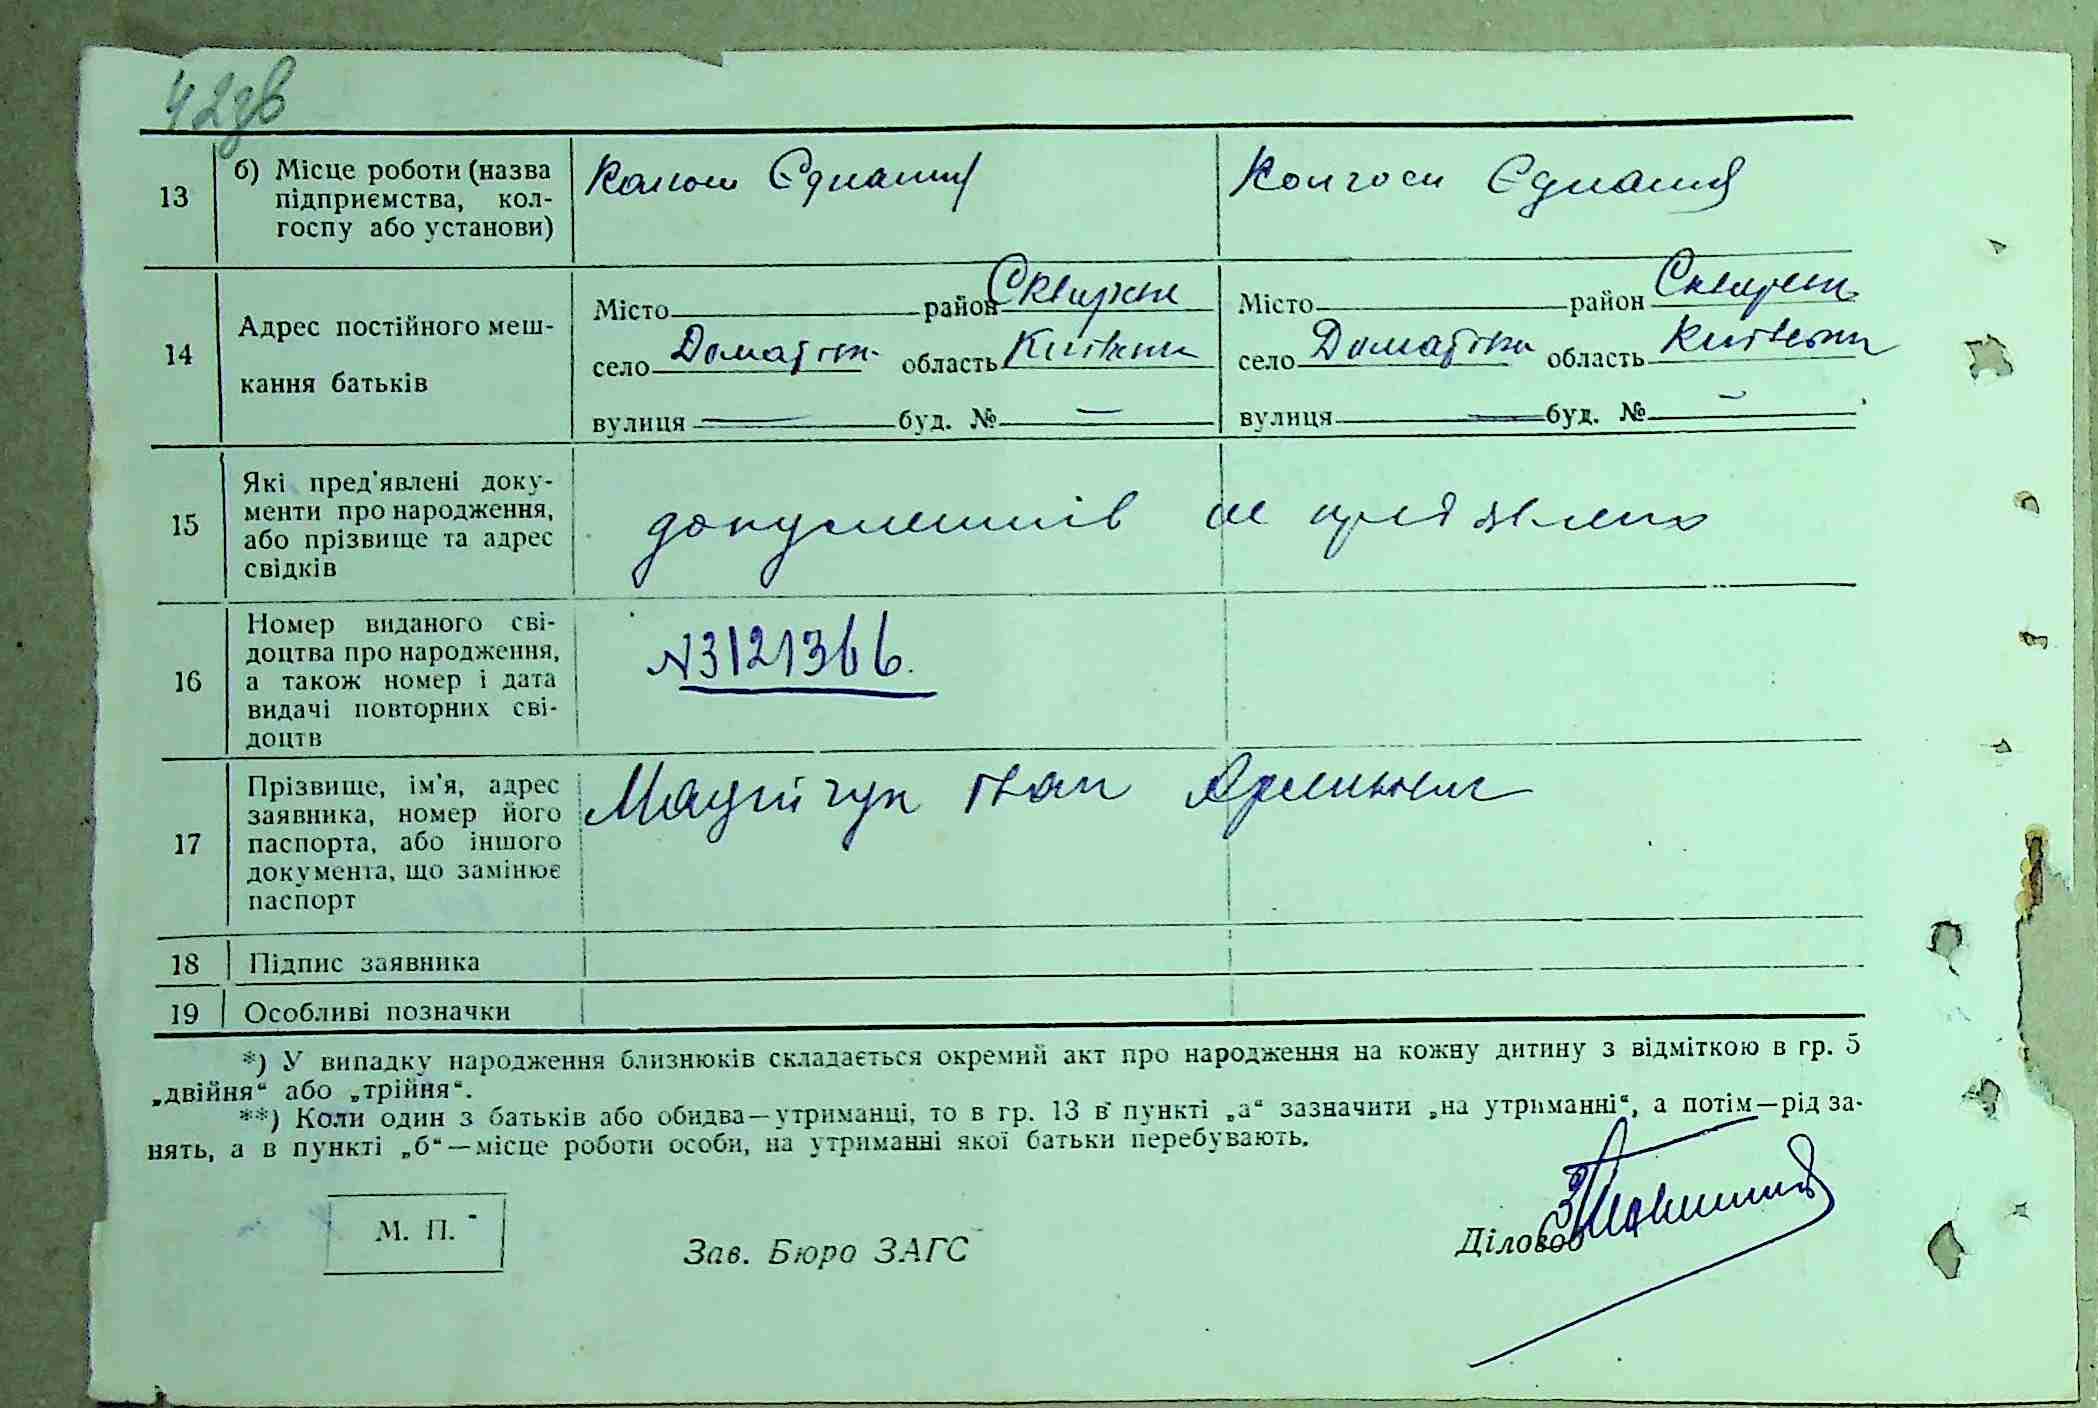 42зв
13
б) Місце роботи (назва
підприємства, кол-
госпу або установи)
Колгосп Єднання
Колгосп Єднання
14
Адрес постійного меш-
кання батьків
Місто район Сквирськ
село область Київськ
вулиця — буд. № —
Місто район Сквирськ
село область Київськ
вулиця — буд. № —
15
Які пред'явлені доку-
менти про народження,
або прізвище та адрес
свідків
документів не пред'явлено
16
Номер виданого сві-
доцтва про народження,
а також номер і дата
видачі повторних сві-
доцтв
N3121366.
17
Прізвище, ім'я, адрес
заявника, номер його
паспорта, або іншого
документа, що замінює
паспорт
Іван
18
Підпис заявника
19
Особливі позначки
*) У випадку народження близнюків складається окремий акт про народження на кожну дитину з відміткою в гр. 5
„двійня“ або „трійня“.
**) Коли один з батьків або обидва—утриманці, то в гр. 13 в пункті „а“ зазначити „на утриманні“, а потім—рід за-
нять, а в пункті „б“—місце роботи особи, на утриманні якої батьки перебувають.
М. П.
Зав. Бюро ЗАГС
Діловод